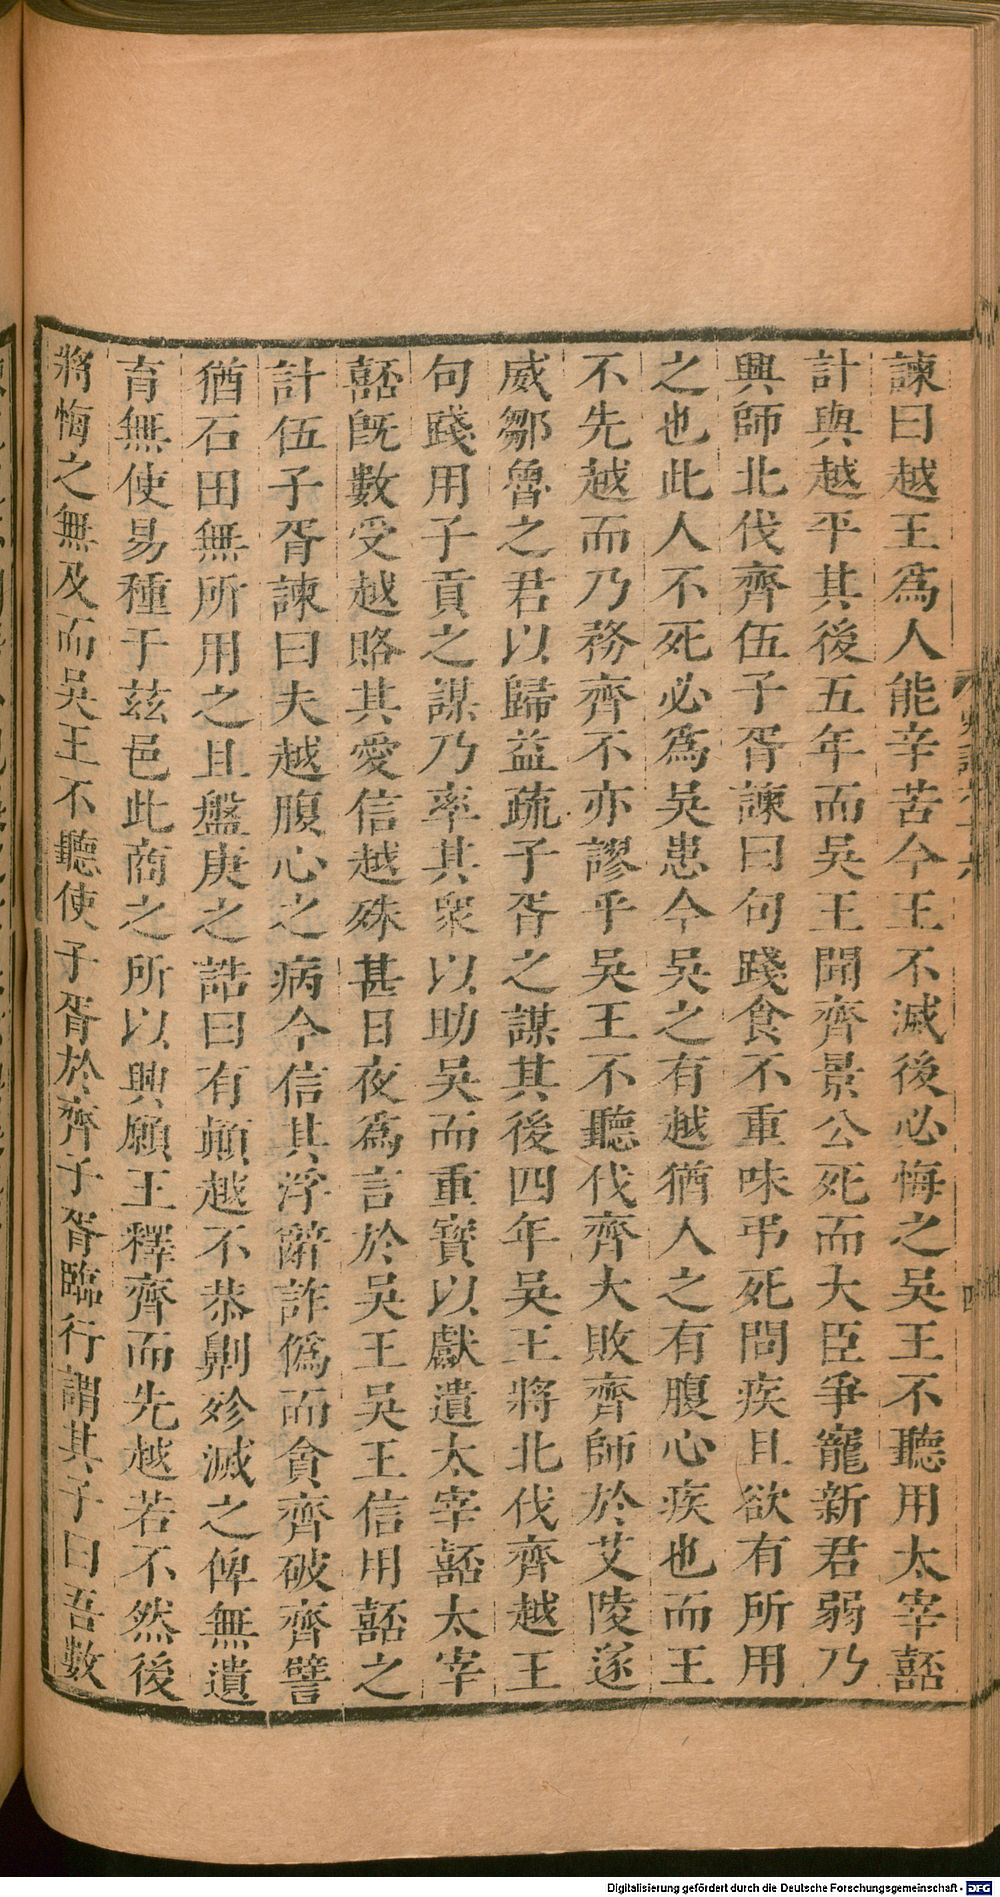 諫曰越王爲人能辛苦今王不滅後必悔之吳王不聽用太宰嚭
計與越平其後五年而吳王聞齊景公死而大臣爭寵新君弱乃
興師北伐齊伍子胥諫曰句踐食不重味弔死問疾且欲有所用
之也此人不死必爲吳患今吳之有越猶人之有腹心疾也而王
不先越而乃務齊不亦謬乎吳王不聽伐齊大敗齊師於艾陵遂
威鄒魯之君以歸益疏子胥之謀其後四年吳王將北伐齊越王
句踐用子貢之謀乃率其衆以助吳而重寶以獻遺太宰嚭太宰
嚭旣數受越賂其愛信越殊甚日夜爲言於吳王吳王信用嚭之
計伍子胥諫曰夫越腹心之病今信其浮辭詐僞而貪齊破齊譬
猶石田無所用之且盤庚之誥曰有顚越不恭劓殄滅之俾無遺
育無使易種于茲邑此商之所以興願王釋齊而先越若不然後
將悔之無及而吳王不聽使子胥於齊子胥臨行謂其子曰吾數
四
Digitalisierung gefördert durch die Deutsche Forschungsgemeinschaft - DFG